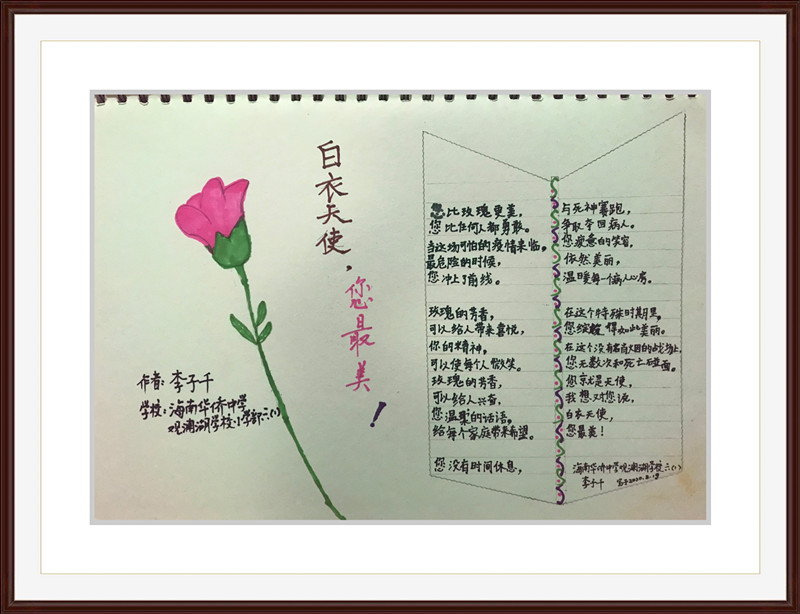 白衣天使，
您最美！
作者：李子千
学校：海南华侨中学
观澜湖学校小学部六(1)
比玫瑰更美，
您比任何人都勇敢。
当这场可怕的疫情来临，
最危险的时候，
您冲上了前线。
玫瑰的芳香，
可以给人带来喜悦，
你的精神，
可以使每个人微笑。
玫瑰的芳香，
可以给人兴奋，
您温柔的话语。
给每个家庭带来希望。
您没有时间休息，
与死神赛跑，
争取夺回病人。
您疲惫的笑容，
依然美丽，
温暖每一个病人心房。
在这个特殊时期里，
您绽放得如此美丽。
在这个没有硝烟的战场上，
您无数次和死亡碰面。
您就是天使，
我想对您说，
白衣天使，
您最美！
海南华侨中学观澜湖学校六(1)
李子千 写于2020.2.18